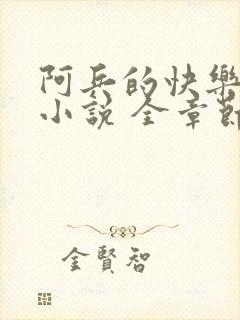 阿兵的快樂
小說 全章節
金賢智